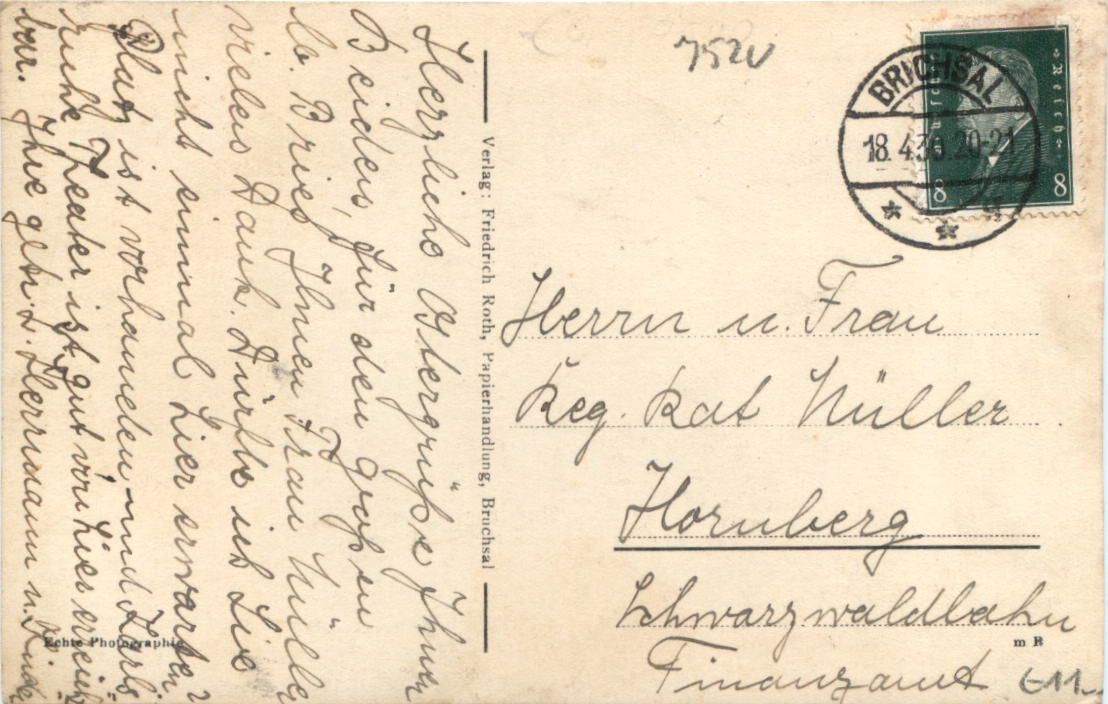 Herzliche Ostergrüße Ihnen
Beiden, für den großen
lb. Brief Ihnen Frau Müller
vielen Dank. Dürfte ich Sie
nicht einmal hier erwarten?
Platz ist vorhanden, und
Theater ist gut von hier
bar. Ihre getr. L. Herrmann u. Kinder
Verlag: Friedrich Roth, Papierhandlung, Bruchsal
Echte Photographie
752V
BRUCHSAL
18.4.30.20-21
8
8
Herrn u. Frau
Reg. Rat Müller
Hornberg
Schwarzwaldbahn
Finanzamt
m R